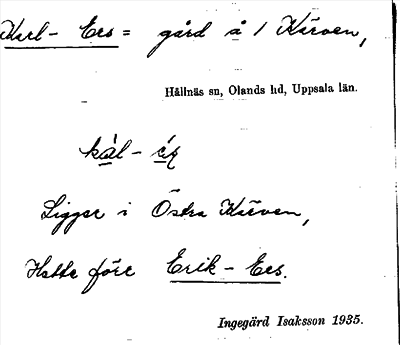 Karl-Ers = gård å / Kärven,
Hållnäs sn, Olands hd, Uppsala län.
kàl-
Ligger i Östra Kärven,
Hette före Erik-Ers.
Ingegärd Isaksson 1935.